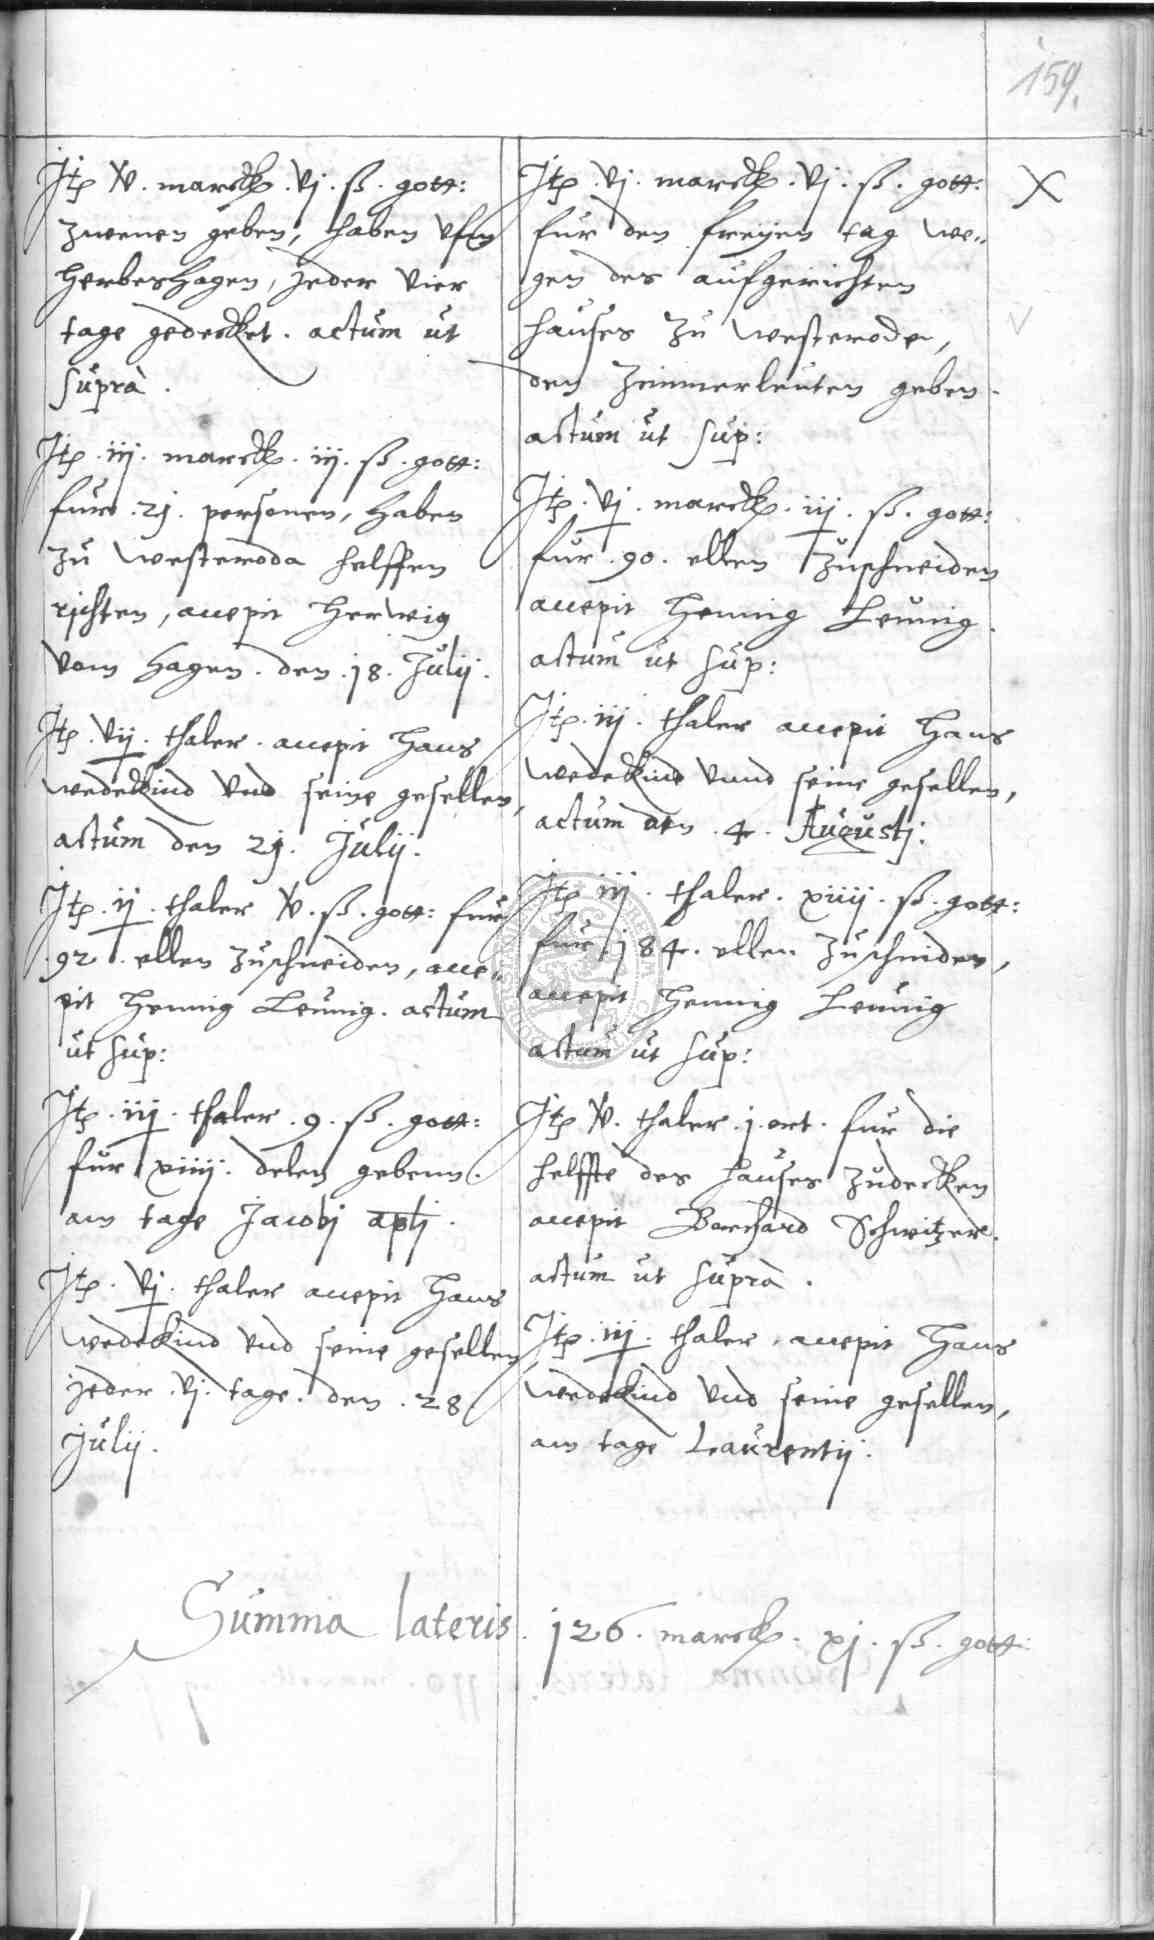 159.
Itp v. marck. vj. ß. gott:
zweien geben, haben vfm
Herbeshagen, jeder vier
tage gedecket. actum ut
suprà.
Itp. iij. marck. iij. ß. gott:
fur. 2j. personen, haben
zu Westeroda helffen
richten, accepit Herwig
vom Hagen. den. j8. Julij.
Itp. vij. thaler. accepit Hans
Wedekind vnd seine gesellen,
actum den 2j. Julij.
Itp. ij. thaler v. ß. gott: fur
.92. ellen zuschneiden, acce-
pit Hennig Leunig. actum
ut sup:
Itp. iij. thaler. 9. ß. gott:
fur xiiij. delen gebenn.
am tage Jacobj aptj.
Itp. vj. thaler accepit Hans
Wedekind vnd seine gesellen
jeder. vj. tage. den. 28
Julij.
Itp. vj. marck. vj. ß. gott:
fur den freyen tag we-
gen des aufgerichten
hauses zu Westerode,
den Zimmerleuten geben.
actum ut sup:
Itp. vj. marck. iij. ß. gott:
fur. 90. ellen zuschneiden
accepit Hennig Leunig.
actum ut sup:
Itp. iij. thaler accepit Hans
Wedekind vnnd seine gesellen,
actum den. 4. Augustj:
Itp iij. thaler. xiiij. ß. gott:
fur. j84. ellen zuschniden,
accepit Hennig Leunig
actum ut sup:
Itp v. thaler. j. ort. fur die
helffte des hauses zudecken
accepit Borchard Schwitzer.
actum ut suprà.
Itp. iij. thaler, accepit Hans
Wedekind vnd seine gesellen,
am tage Laurentij.
Summa lateris. j26. marck. xj. ß. gott: